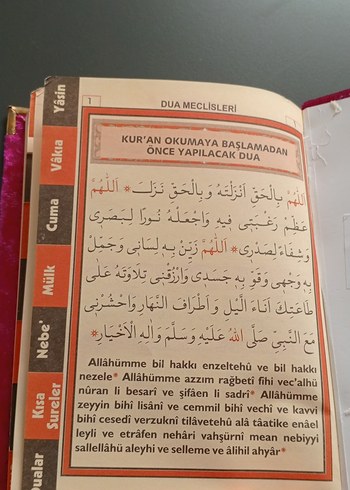 Yâsin
Vâkıa
Cuma
Mülk
Nebe'
Kısa
Sureler
Dualar
1
DUA MECLİSLERİ
KUR'AN OKUMAYA BAŞLAMADAN
ÖNCE YAPILACAK DUA
اَللّٰهُمَّ بِالْحَقِّ اَنْزَلْتَهُ وَبِالْحَقِّ نَزَلَ * اَللّٰهُمَّ
عَظِّمْ رَغْبَتِى فِيهِ وَاجْعَلْهُ نُورًا لِبَصَرِى
وَشِفَاءً لِصَدْرِى * اَللّٰهُمَّ زَيِّنْ بِهِ لِسَانِى وَجَمِّلْ
بِهِ وَجْهِى وَقَوِّ بِهِ جَسَدِى وَارْزُقْنِى تِلَاوَتَهُ عَلٰى
طَاعَتِكَ اٰنَاءَ الَّيْلِ وَاَطْرَافَ النَّهَارِ وَاحْشُرْنِى
مَعَ النَّبِىِّ صَلَّى اللهُ عَلَيْهِ وَسَلَّمَ وَاٰلِهِ الْاَخْيَارِ *
Allâhümme bil hakkı enzeltehû ve bil hakkı
nezele* Allâhümme azzım rağbetî fîhi vec'alhü
nûran li besarî ve şifâen li sadrî* Allâhümme
zeyyin bihî lisânî ve cemmil bihî vechî ve kavvî
bihî cesedî verzuknî tilâvetehû alâ tâatike enâel
leyli ve etrâfen nehâri vahşürnî mean nebiyyi
sallellâhü aleyhi ve selleme ve âlihil ahyâr*